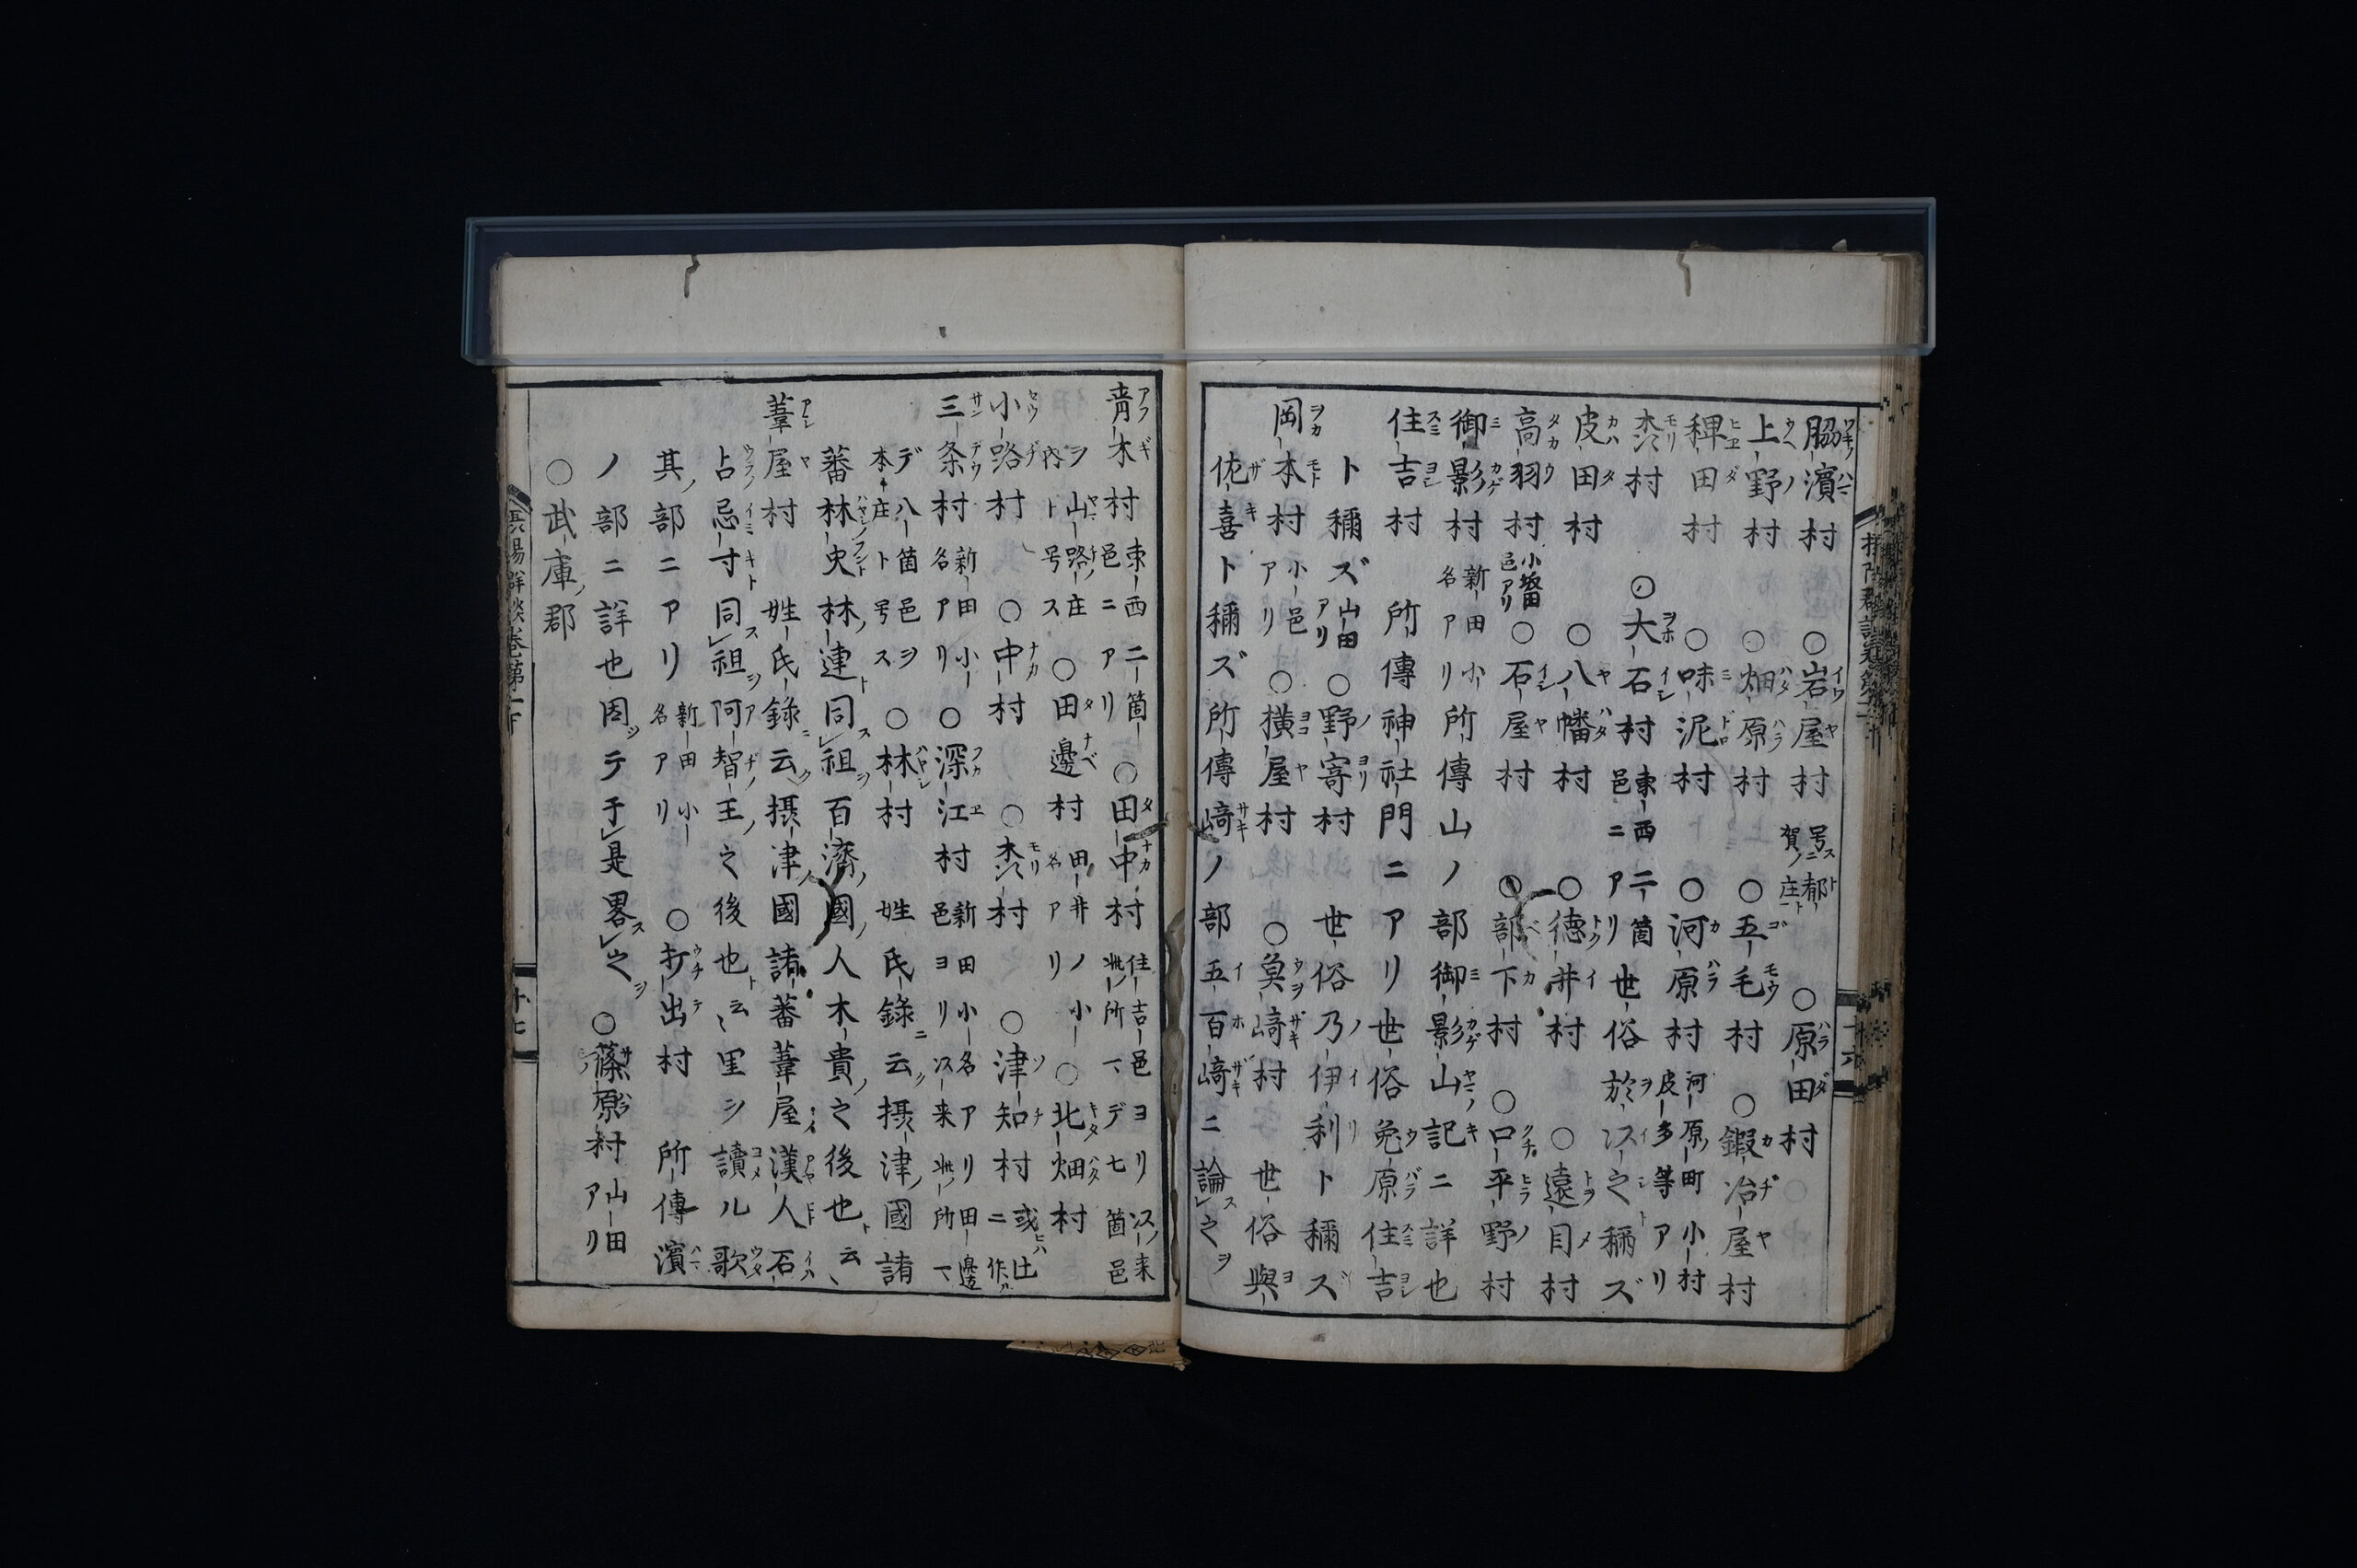 脇濱村 ○岩屋村 号ス郁賀ノ庄ト ○原田村
上野村 ○畑原村 ○五毛村 ○鍜冶屋村
稗田村 ○味泥村 ○河原村 河原ノ町 小村皮多等アリ
森村 ○大石村 東西二箇邑ニアリ 世俗於イシト之稱ズ
皮田村 ○八幡村 ○徳井村 ○遠目村
高羽村 小坂田邑アリ ○石屋村 ○部下村 ○口平野村
御影村 新田小名アリ 所傳山ノ部御影山ノ記ニ詳也
住吉村 所傳神社門ニアリ世俗兔原住吉
ト稱ズ 山田アリ ○野寄村 世俗乃伊利ト稱ズ
岡本村 小邑アリ ○横屋村 ○魚﨑村 世俗與
佐喜ト稱ズ所傳﨑ノ部五百﨑ニ論ス之ヲ
青木村 東西二箇邑ニアリ ○田中村 住吉邑ヨリ次ノ来此ノ所マデ七箇邑
ヲ山路ノ庄内ト号ス ○田邊村 田井ノ小名アリ ○北畑村
小路村 ○中村 ○森村 ○津知村 或ヒハ辻ニ作ル
三条村 新田小名アリ ○深江村 新田小名アリ田邊邑ヨリ次来此ノ所マ
デ八箇邑ヲ本庄ト号ス ○林村 姓氏録ニ云ク摂津ノ國諸
蕃林史林ノ連ト同ス祖ヲ百濟ノ國ノ人木貴ノ之後也ト云〻
葦屋村 姓氏録ニ云ク摂津ノ國諸蕃葦屋漢人石
占忌寸同ス祖ヲ阿智ノ王ノ之後也ト云〻里ヲ讀ル歌
其ノ部ニアリ 新田小名アリ ○打出村 所傳濱
ノ部ニ詳也因ッテ于是畧ス之ヲ ○篠原村 山田アリ
○武庫ノ郡